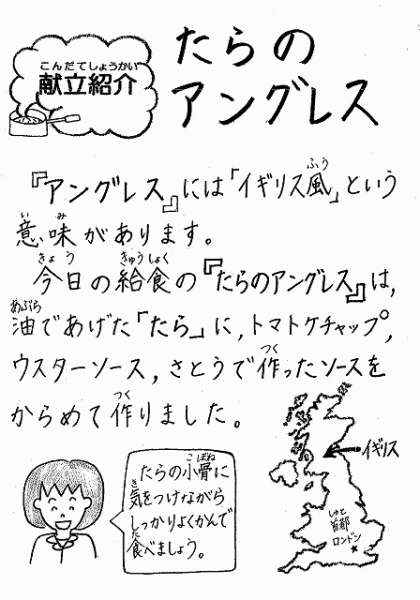 こんだてしょうかい
献立紹介
たらの
アングレス
『アングレス』には「イギリス風」という
ふう
意味があります。
いみ
今日の給食の『たらのアングレス』は,
きょう きゅうしょく
油であげた「たら」に,トマトケチャップ,
あぶら
ウスターソース,さとうで作ったソースを
つく
からめて作りました。
つく
たらの小骨に
こぼね
気をつけながら
き
しっかりよくかんで
食べましょう。
た
イギリス
しゅと
首都
ロンドン